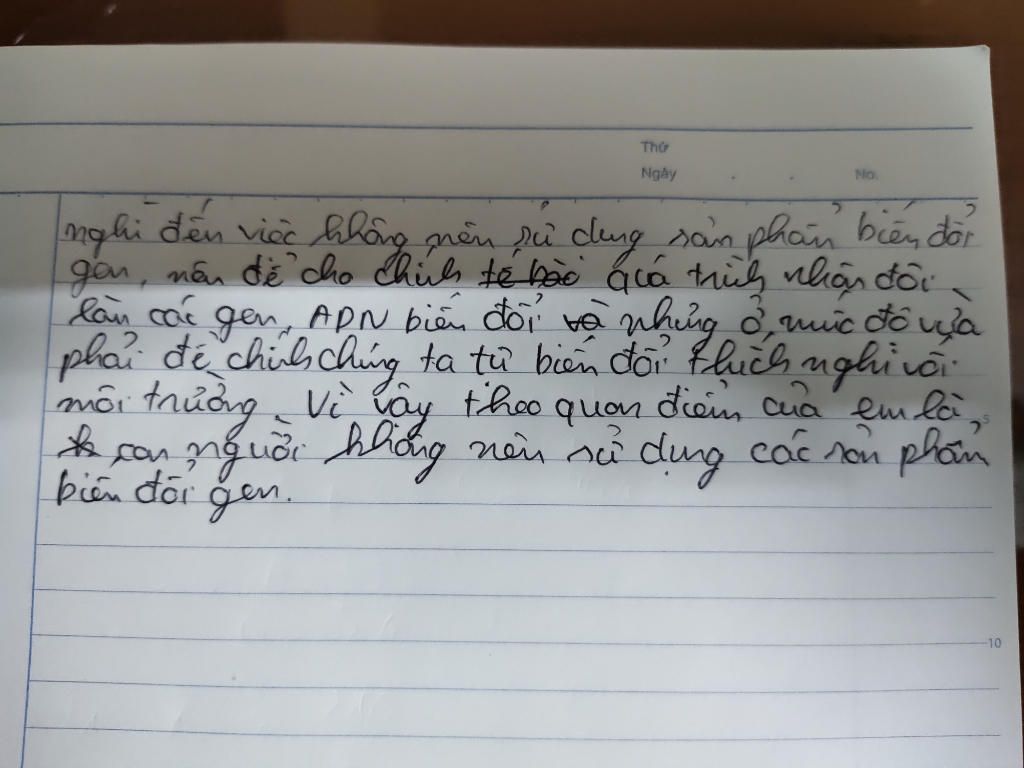 Thứ
Ngày . . No.
nghỉ đến việc không nên sử dụng sản phẩm biến đổi
gen, nên để cho chính tế bào quá trình nhận đôi
lần các gen, ADN biến đổi và những ở mức độ vừa
phải để chính chúng ta tự biến đổi thích nghi với
môi trường. Vì vậy theo quan điểm của em là,
con người không nên sử dụng các sản phẩm
biến đổi gen.
10